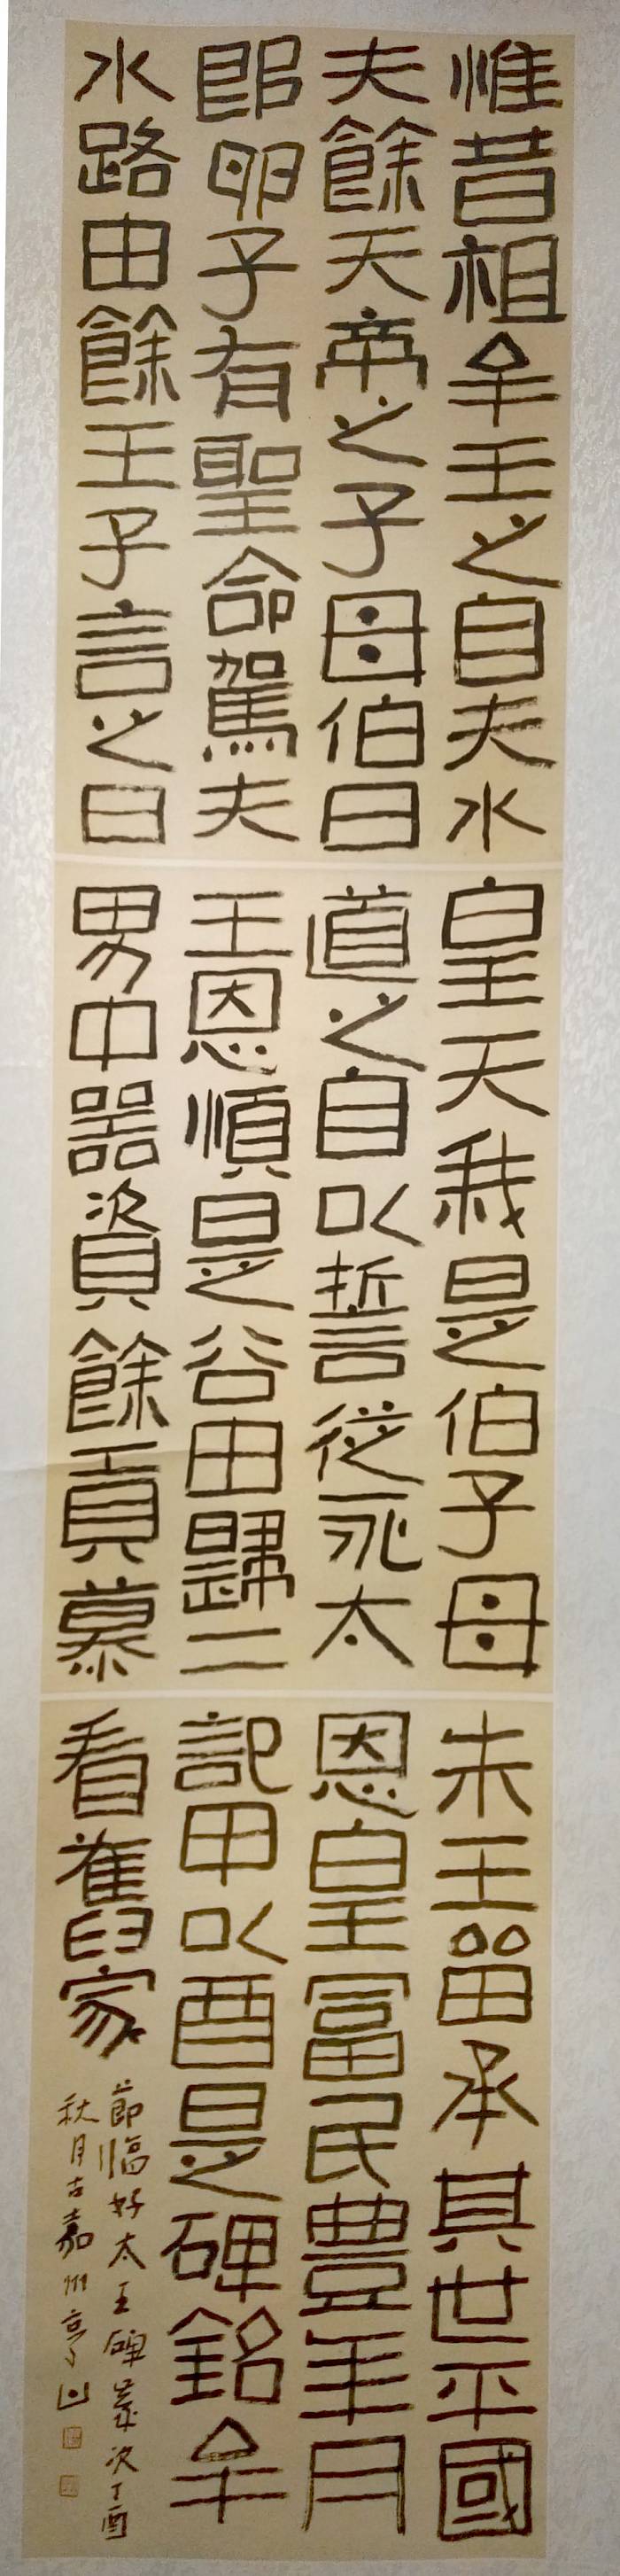 惟昔祖牟王之自夫水皇天我是伯子母未王留承其世平國
夫餘天帝之子母伯曰道之自以誓從永太恩皇王富民豊年月
即卵子有聖命駕夫王恩順是谷田歸二記甲以酉是碑銘牟
水路由餘王子言之曰男中器資餘貢慕看舊家
節臨好太王碑歲次丁酉
秋月古嘉州亭山